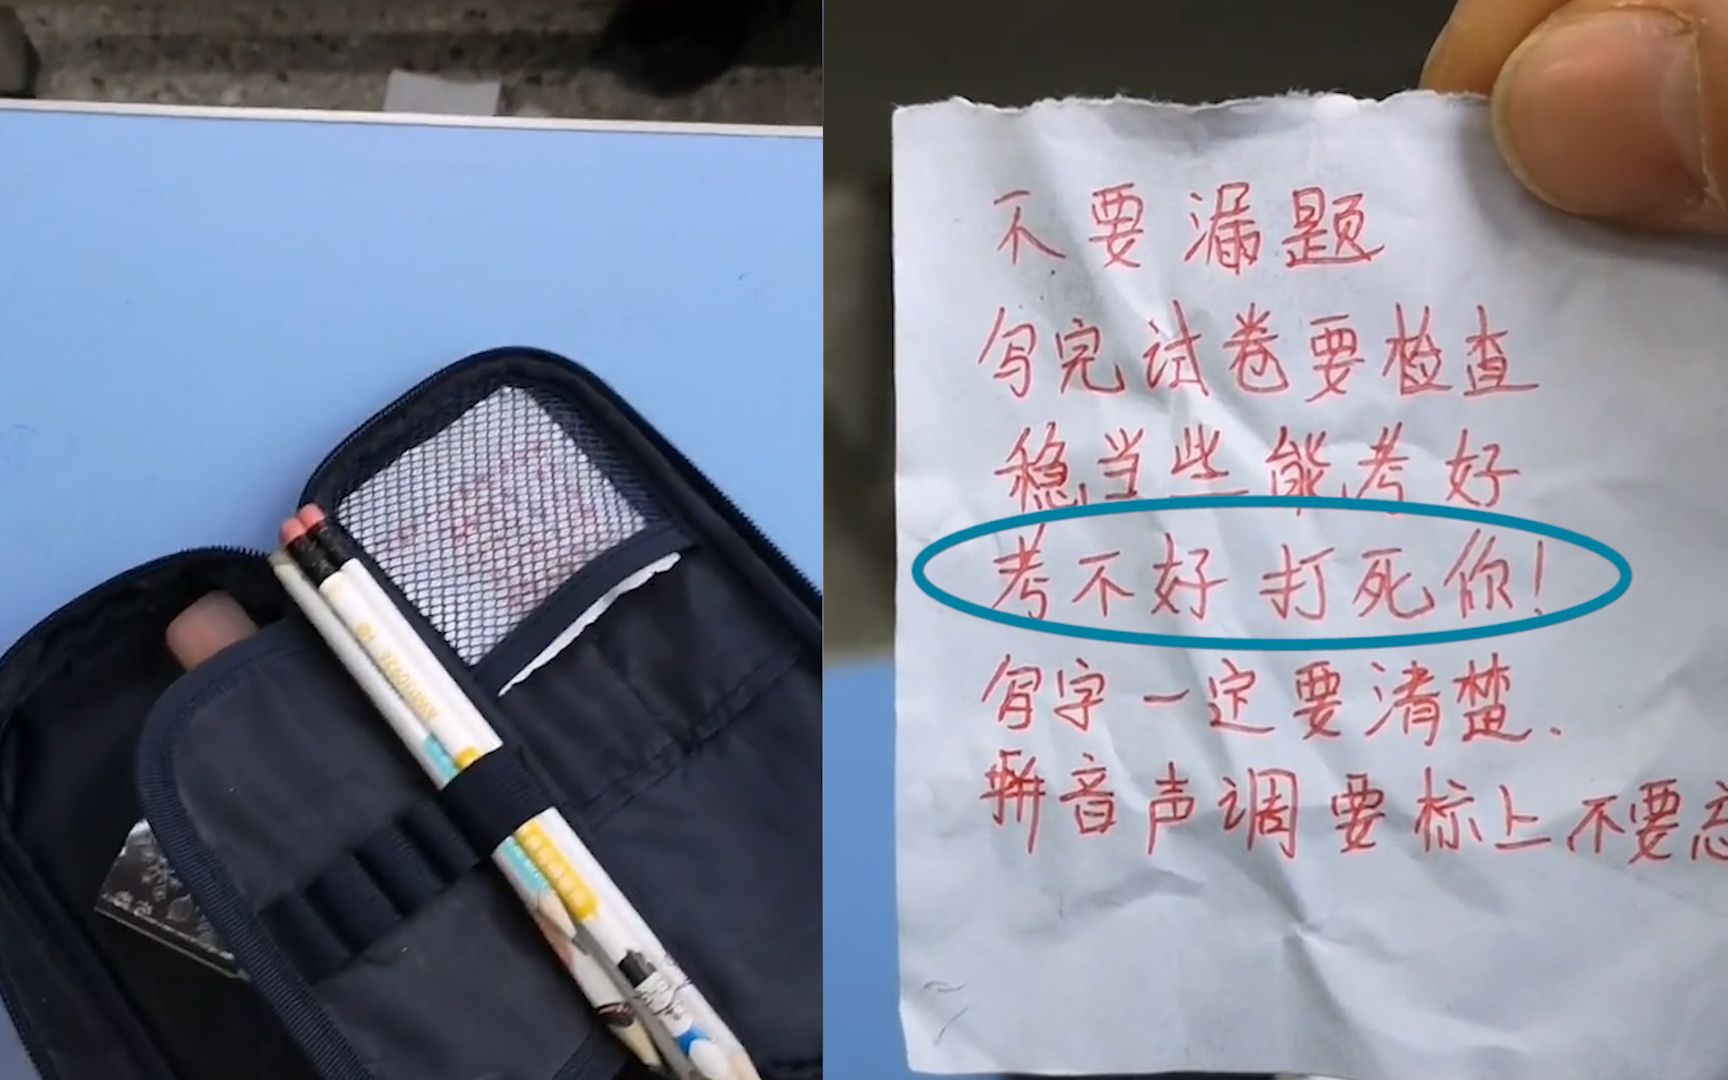 不要漏题
写完试卷要检查
稳当些能考好
考不好打死你!
写字一定要清楚.
拼音声调要标上不要忘